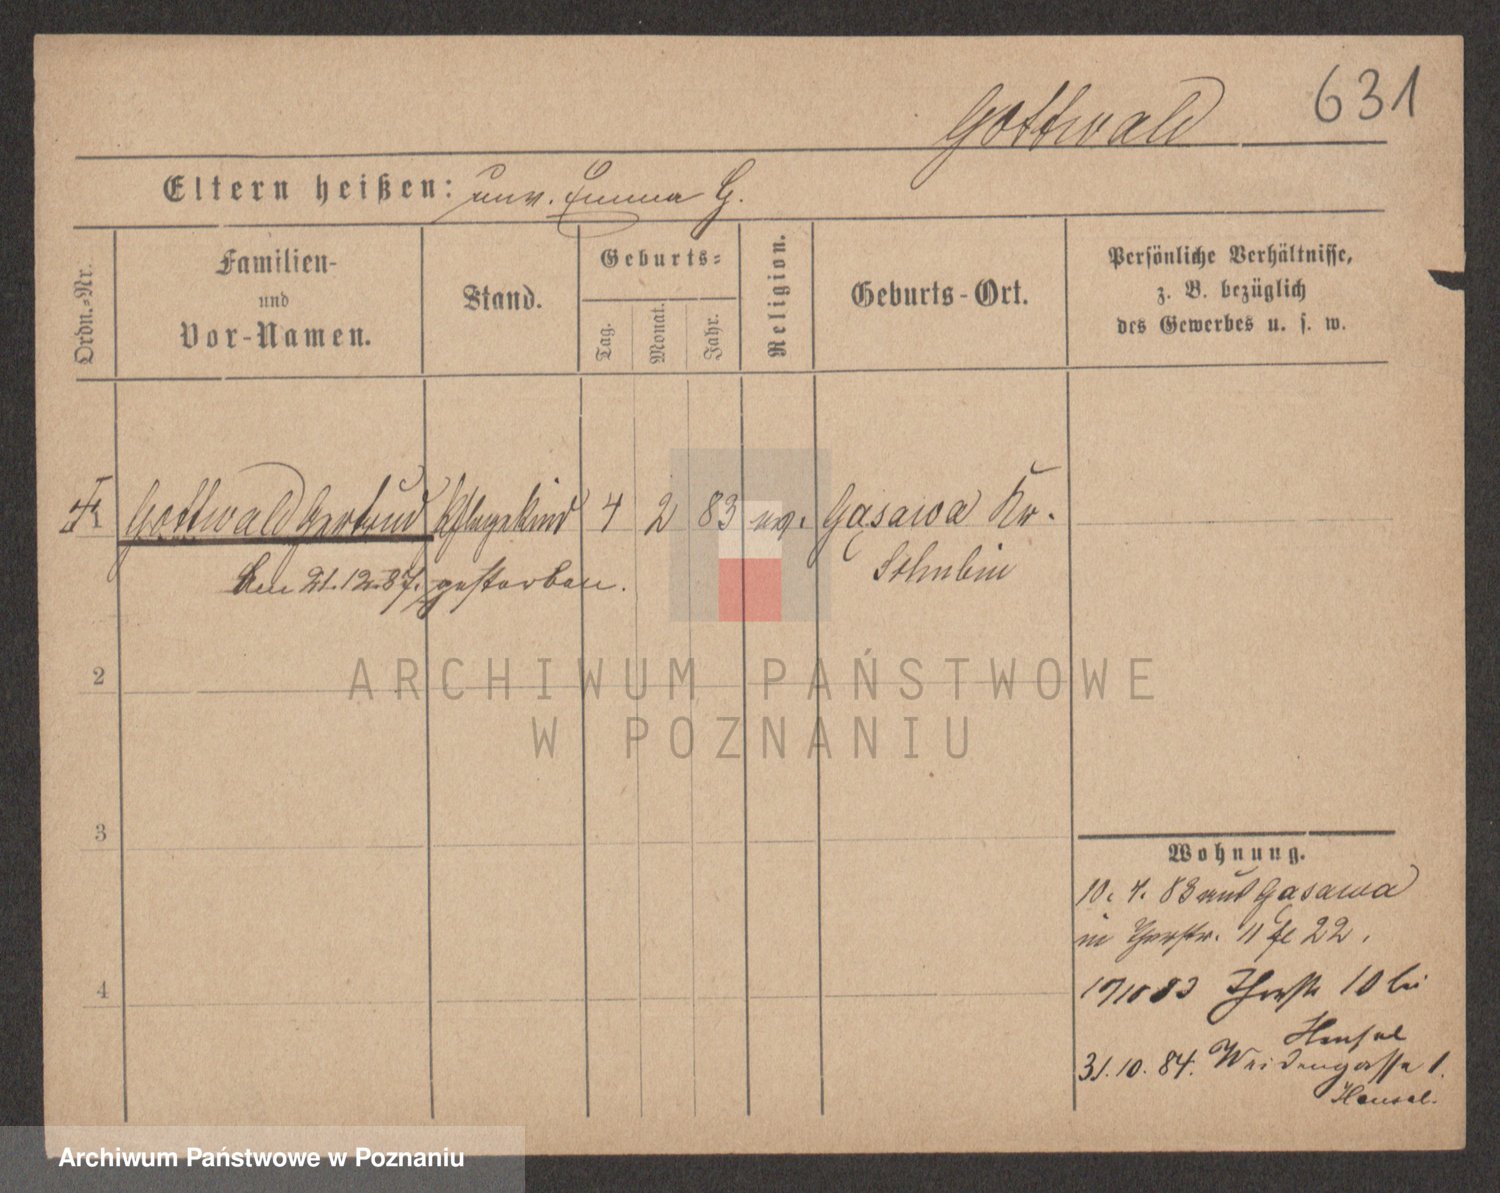 631
Gottwald
Eltern heißen: unv. Emma G.
Ordn.-Nr.
Familien-
und
Vor-Namen.
Stand.
Geburts-
Tag.
Monat.
Jahr.
Religion.
Geburts-Ort.
Persönliche Verhältnisse,
z. B. bezüglich
des Gewerbes u. s. w.
1 Gottwald Gertrud Pflegekind 4 2 83 ev. Gąsawa Kr.
Schubin
Am 21.12.87. gestorben.
2
3
4
Wohnung.
10. 4. 83 aus Gąsawa
in Thorstr. 11 22.
83 Thorstr 10 bei
Hensel
31. 10. 84. Weidengasse 1.
Hensel.
ARCHIWUM PAŃSTWOWE
W POZNANIU
Archiwum Państwowe w Poznaniu